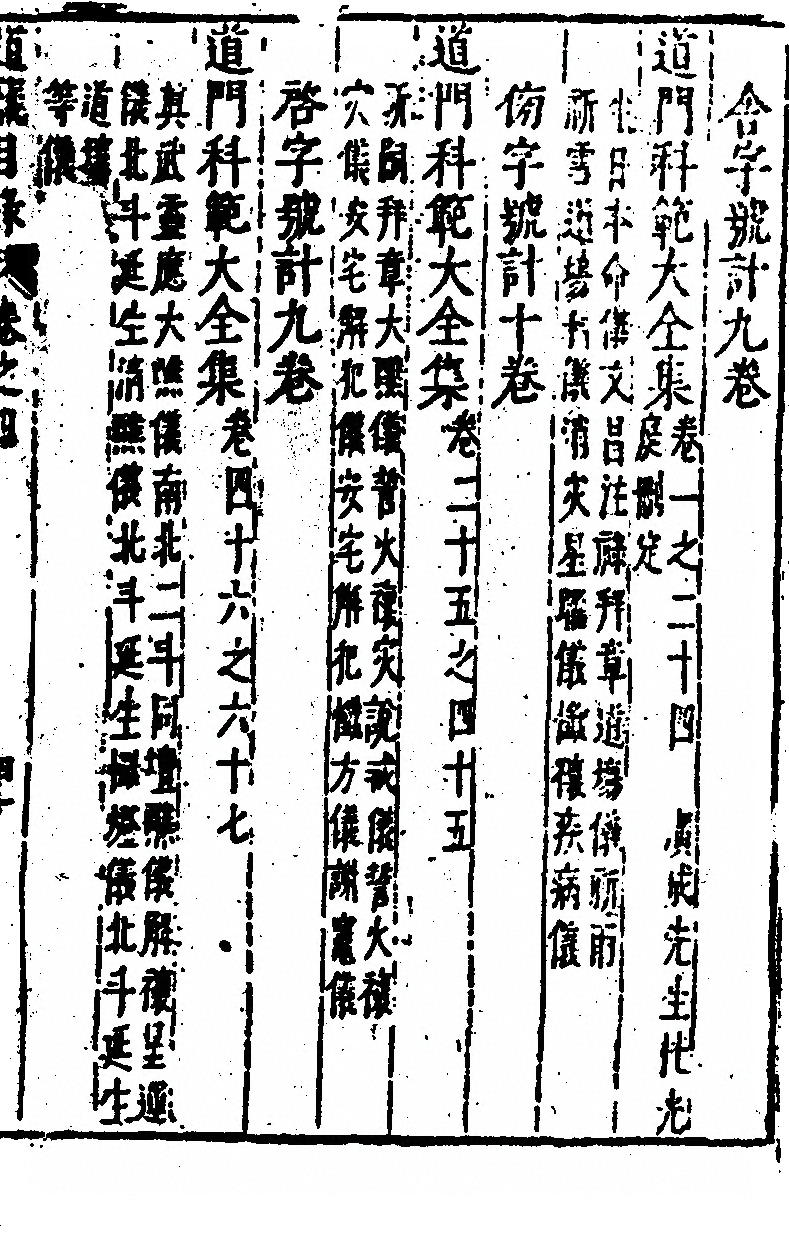 舍字號計九卷
道門科範大全集卷一之二十四 廣成先生杜光
庭刪定
生日本命儀文昌注祿拜章道場儀祈雨
祈雪道場儀消災星曜儀禳疾病儀
傍字號計十卷
道門科範大全集卷二十五之四十五
祈嗣拜章大醮儀誓火禳災說戒儀誓火禳
災儀安宅解犯儀安宅解犯懺方儀謝竈儀
啓字號計九卷
道門科範大全集卷四十六之六十七
真武靈應大醮儀南北二斗同壇醮儀解禳星運
儀北斗延生清醮儀北斗延生掃燈儀北斗延生
道場
等儀
卷之四